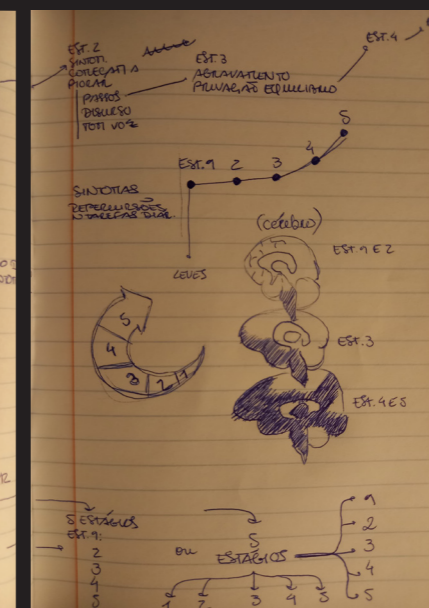 EST. 2
SINTOM.
COMEÇAM A
PIORAR
PASSOS
DISCURSO
TOM VOZ
EST. 3
AGRAVAMENTO
PRIVAÇÃO EQUILÍBRIO
EST. 4
EST. 1
2
3
4
5
SINTOMAS
REPERCUSSÕES
N TAREFAS DIÁR.
LEVES
(cérebro)
EST. 1 E 2
EST. 3
EST. 4 E 5
5
4
3
2
1
5 ESTÁGIOS
EST. 1:
2
3
4
5
ou
5
ESTÁGIOS
1 2 3 4 5
1
2
3
4
5